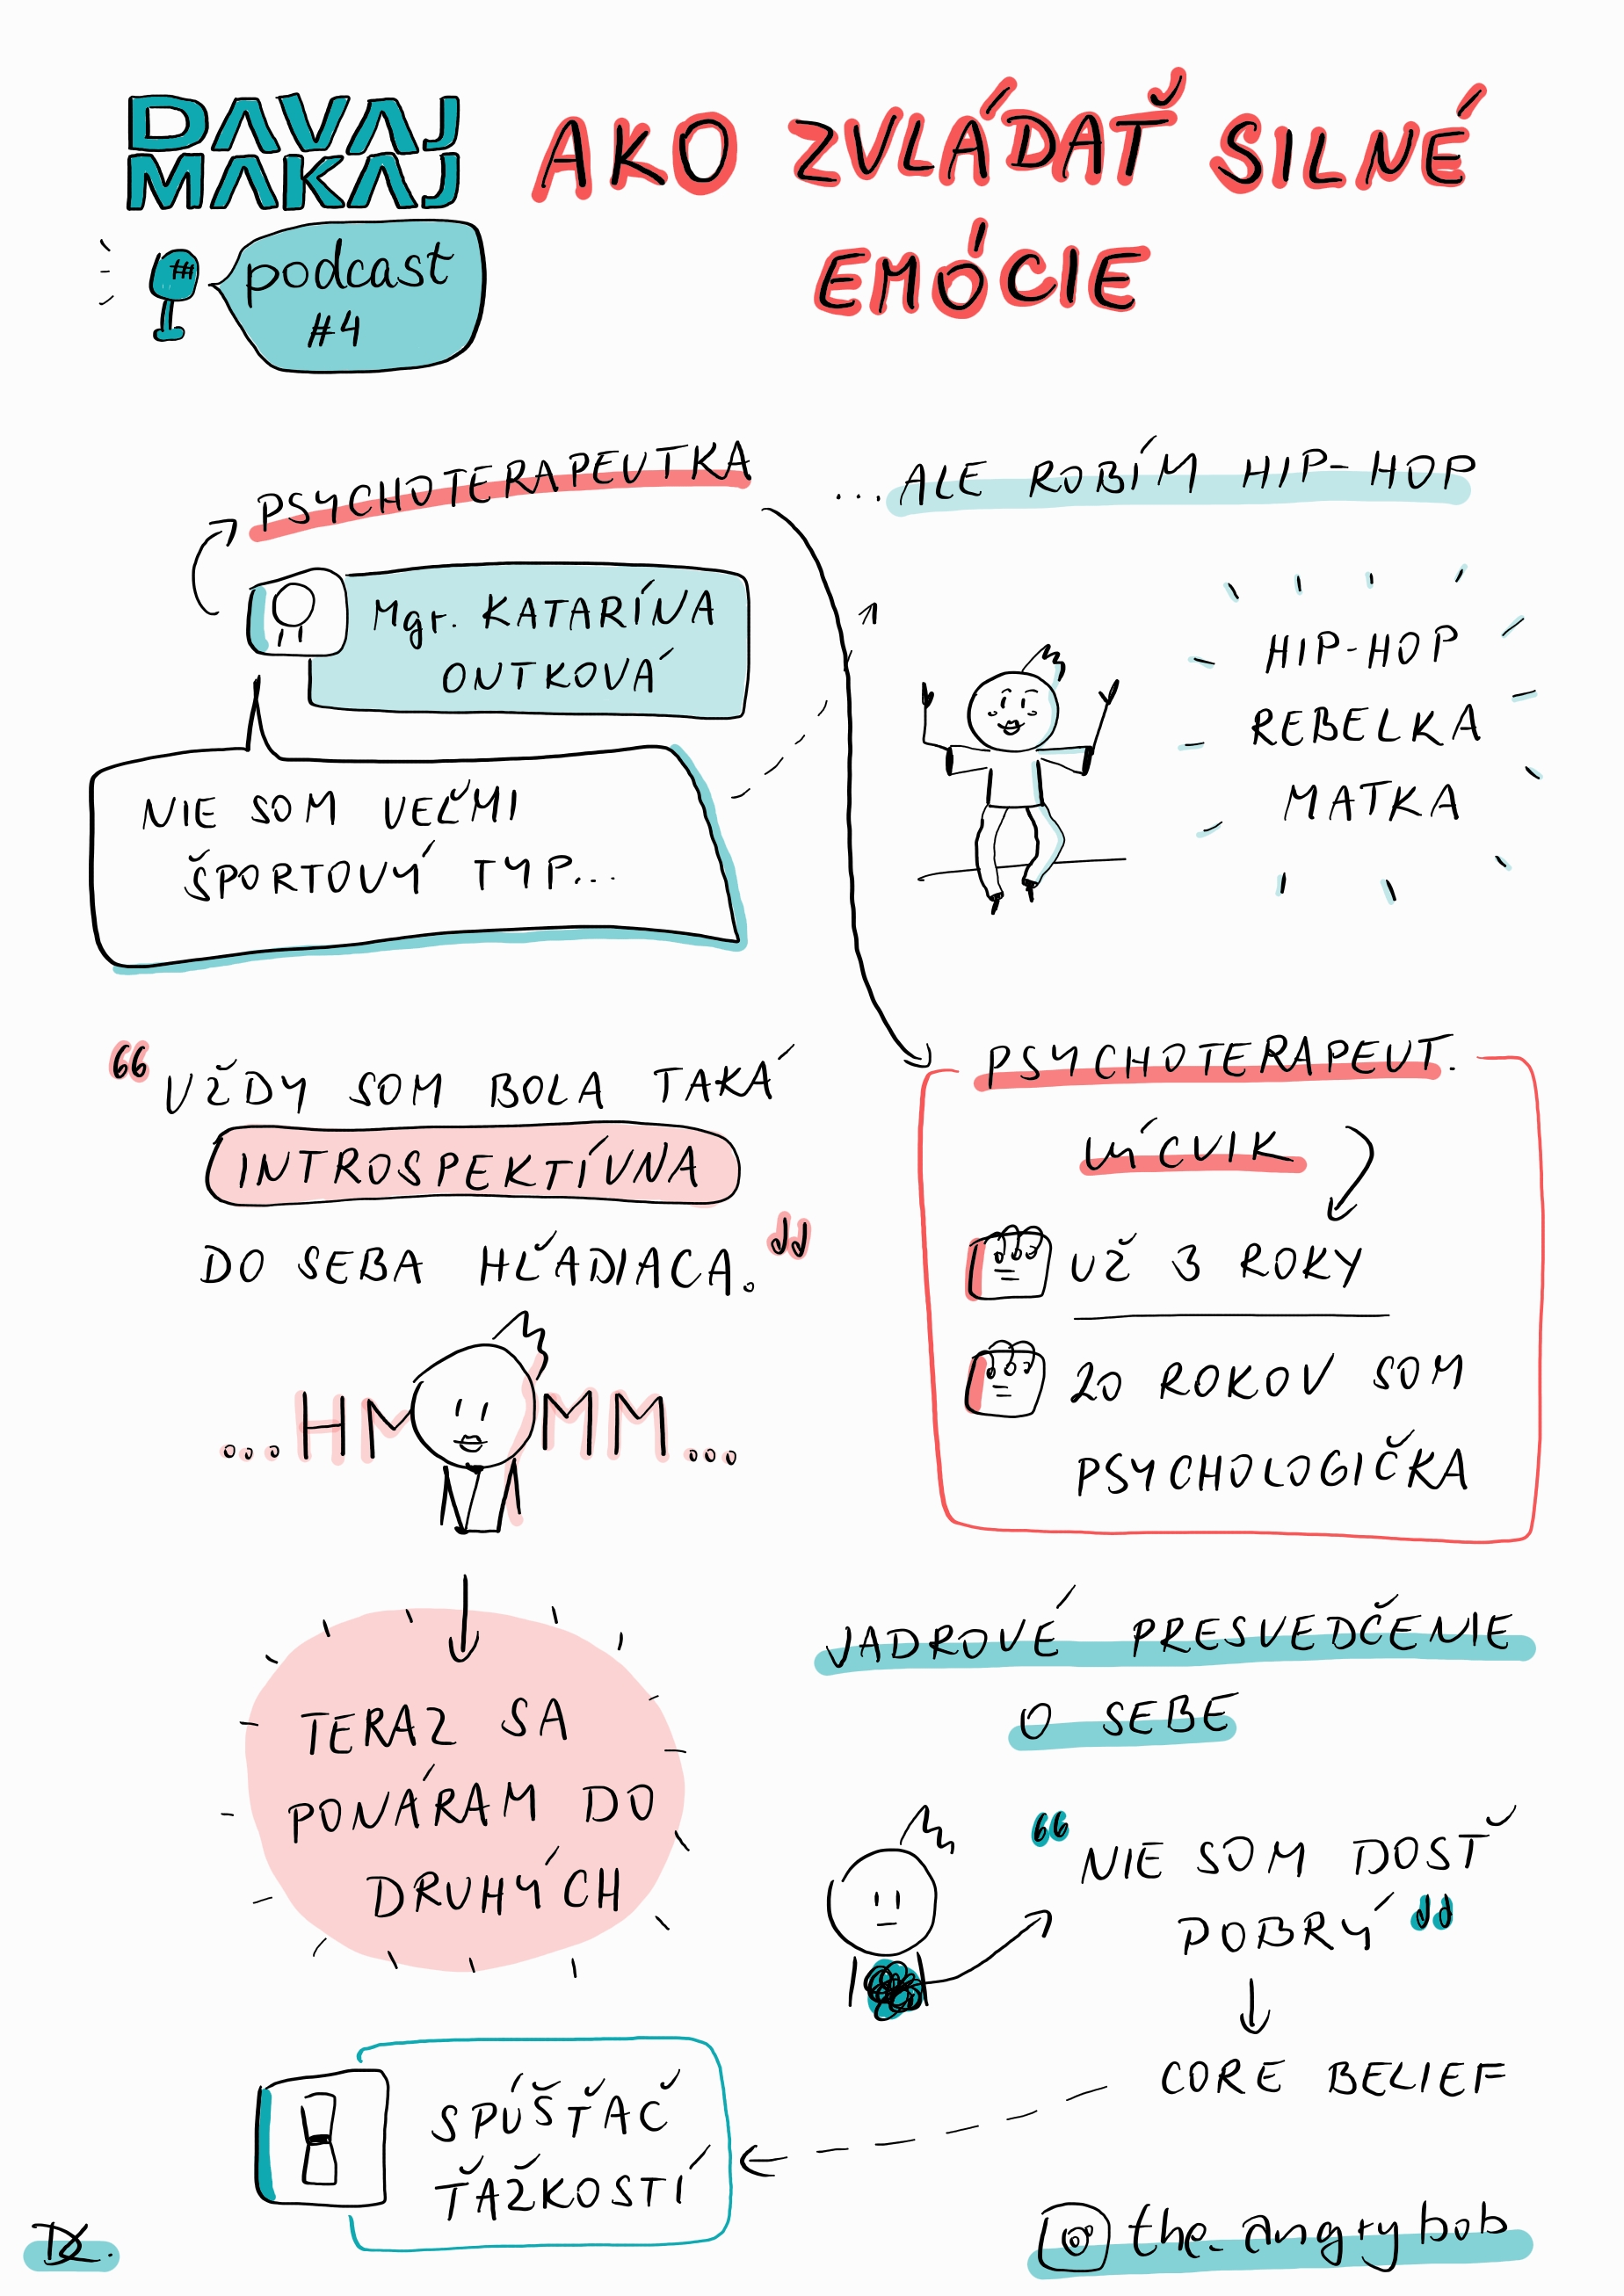 DAVAJ
MAKAJ
podcast
#4
AKO ZVLÁDAŤ SILNÉ
EMÓCIE
PSYCHOTERAPEUTKA
Mgr. KATARÍNA
OUTKOVÁ
NIE SOM VEĽMI
ŠPORTOVÝ TYP...
...ALE ROBÍM HIP-HOP
HIP-HOP
REBELKA
MATKA
“VŽDY SOM BOLA TAKÁ
INTROSPEKTÍVNA
DO SEBA HĽADIACA.”
...HM MM...
TERAZ SA
PONÁRAM DO
DRUHÝCH
PSYCHOTERAPEUT.
VÝCVIK
UŽ 3 ROKY
20 ROKOV SOM
PSYCHOLOGIČKA
JADROVÉ PRESVEDČENIE
O SEBE
“NIE SOM DOSŤ
DOBRÝ”
CORE BELIEF
SPÚŠŤAČ
ŤAŽKOSTÍ
DK.
the_angrybob